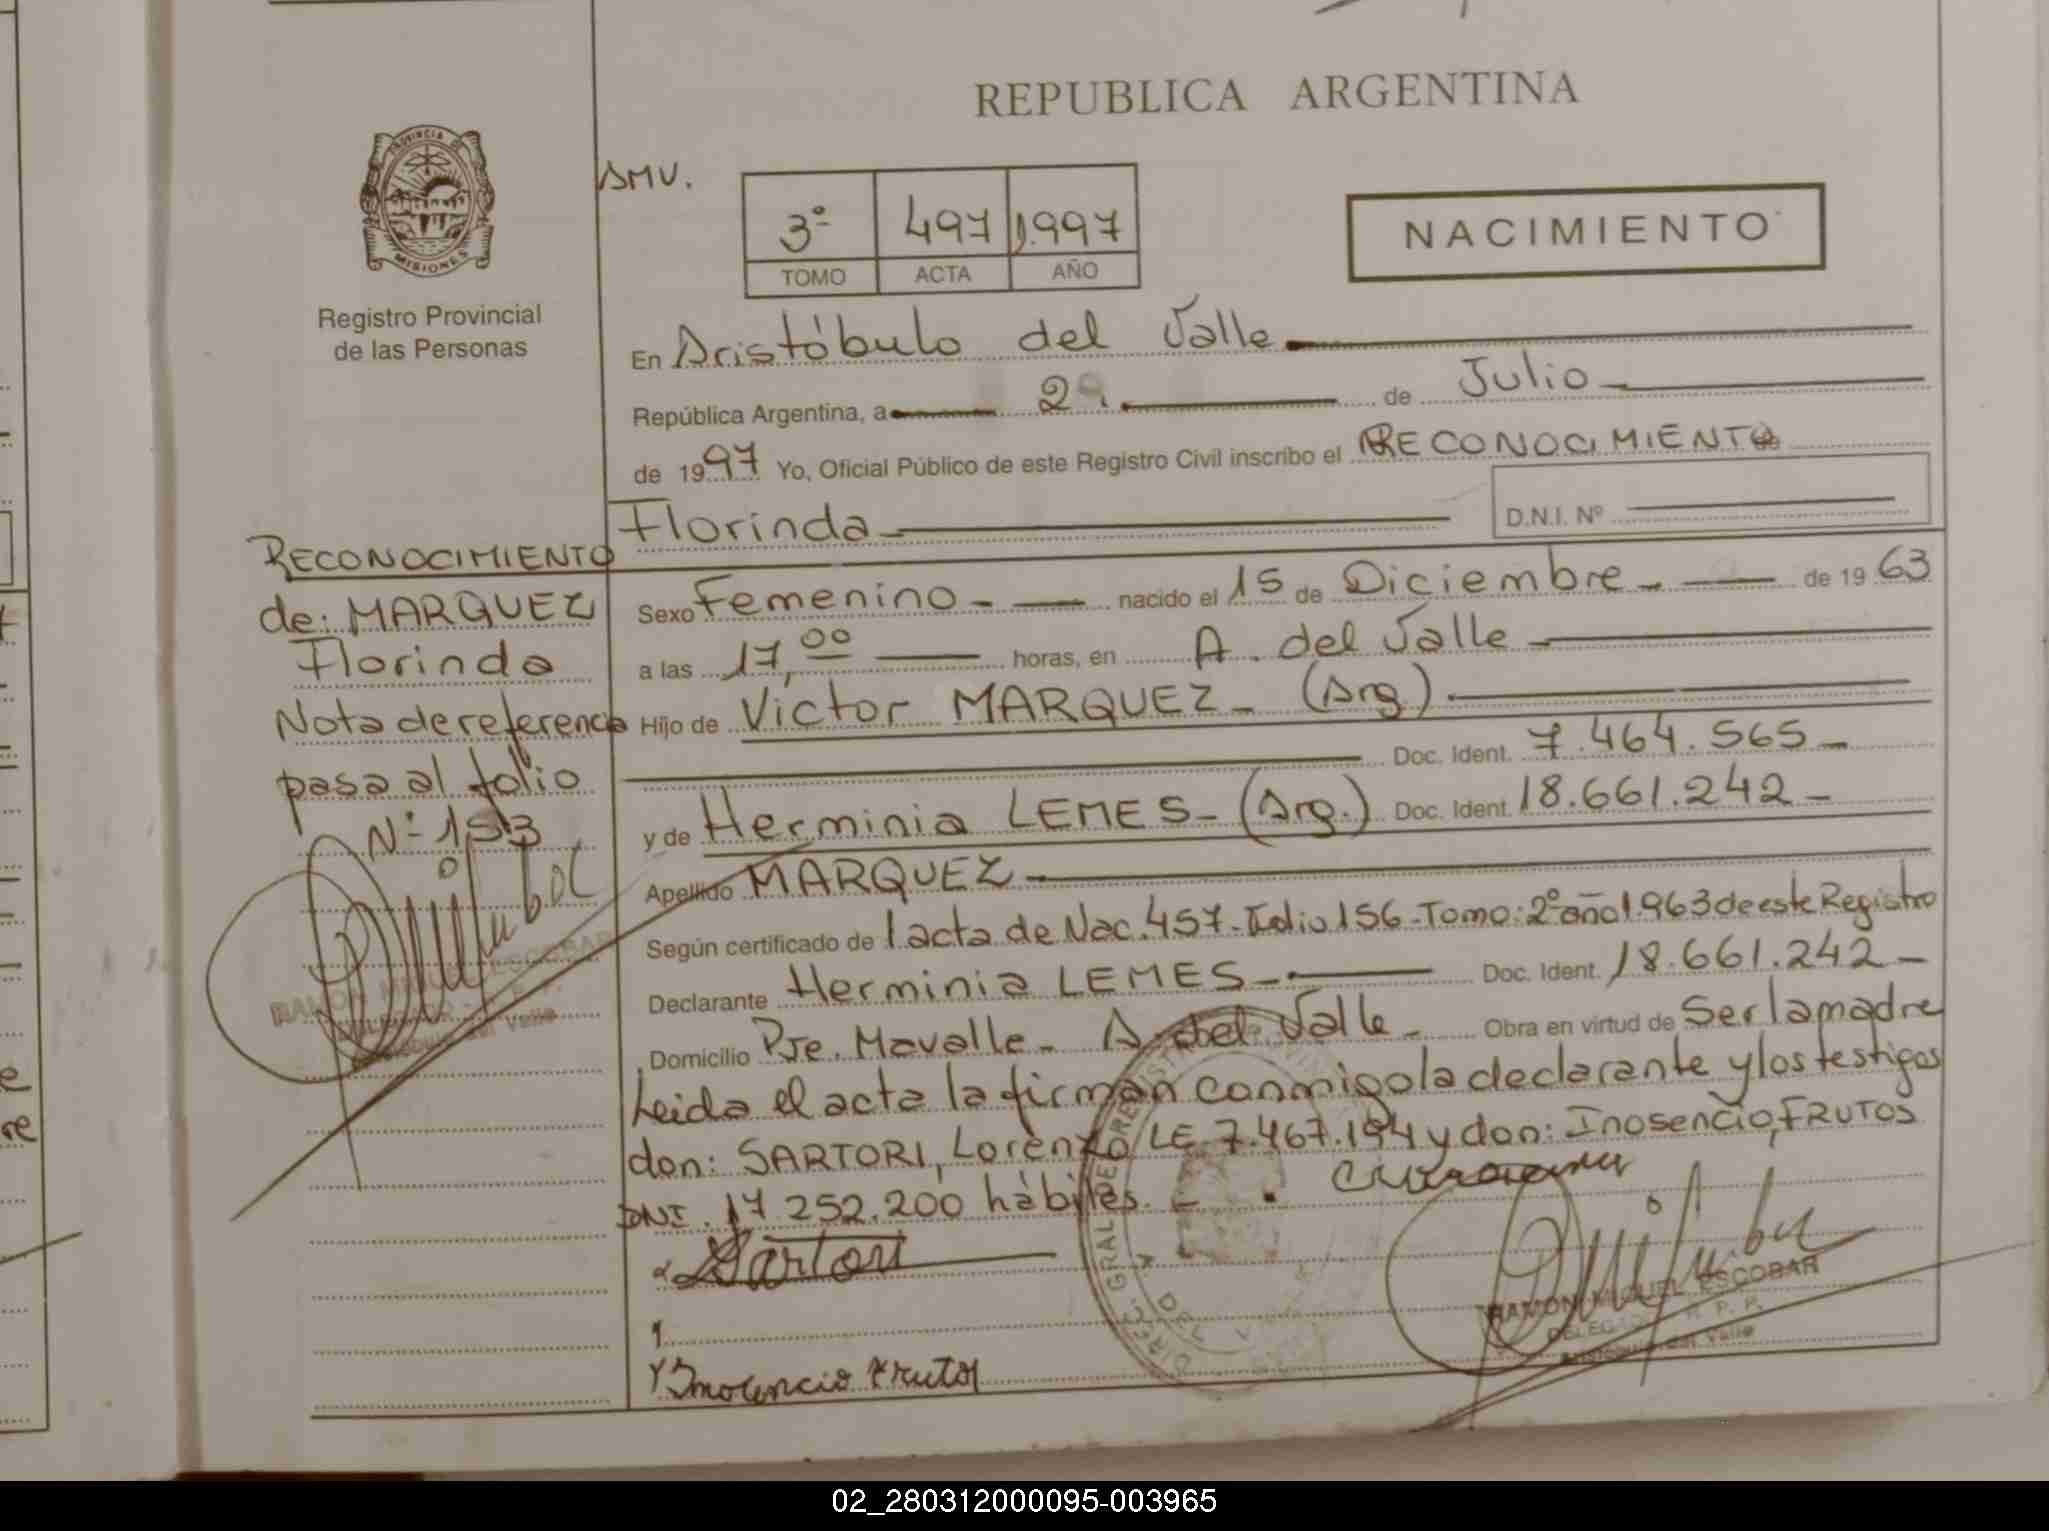 REPUBLICA ARGENTINA
PROVINCIA DE
MISIONES
Registro Provincial
de las Personas
AMV.
3º 497 1.997
TOMO ACTA AÑO
NACIMIENTO
En Aristóbulo del Valle
República Argentina, a 29. de Julio
de 1997 Yo, Oficial Público de este Registro Civil inscribo el RECONOCIMIENTO
Florinda D.N.I. Nº
Sexo Femenino - nacido el 15 de Diciembre - de 1963
a las 17,00 horas, en A. del Valle
Hijo de Victor MARQUEZ - (Arg.)
Doc. Ident. 7.464.565-
y de Herminia LEMES - (Arg.) Doc. Ident. 18.661.242-
Apellido MARQUEZ
Según certificado de 1 acta de Nac. 457 - Folio 156 - Tomo: 2º año 1.963 de este Registro
Declarante Herminia LEMES - Doc. Ident. 18.661.242-
Domicilio Pje. Mavalle - A. del Valle - Obra en virtud de Ser la madre
Leida el acta la firman conmigo la declarante y los testigos
don: SARTORI, Lorenzo LE 7.467.194 y don: Inosencio, FRUTOS
DNI. 17.252.200 hábiles.-
Sartori
Inosencio Frutos
RAMON MIGUEL ESCOBAR
DELEGADO R. P. P.
Aristóbulo del Valle
RECONOCIMIENTO
de: MARQUEZ
Florinda
Nota de referencia
pasa al folio
Nº 153
RAMON MIGUEL ESCOBAR
DELEGADO
Aristóbulo del Valle
02_280312000095-003965